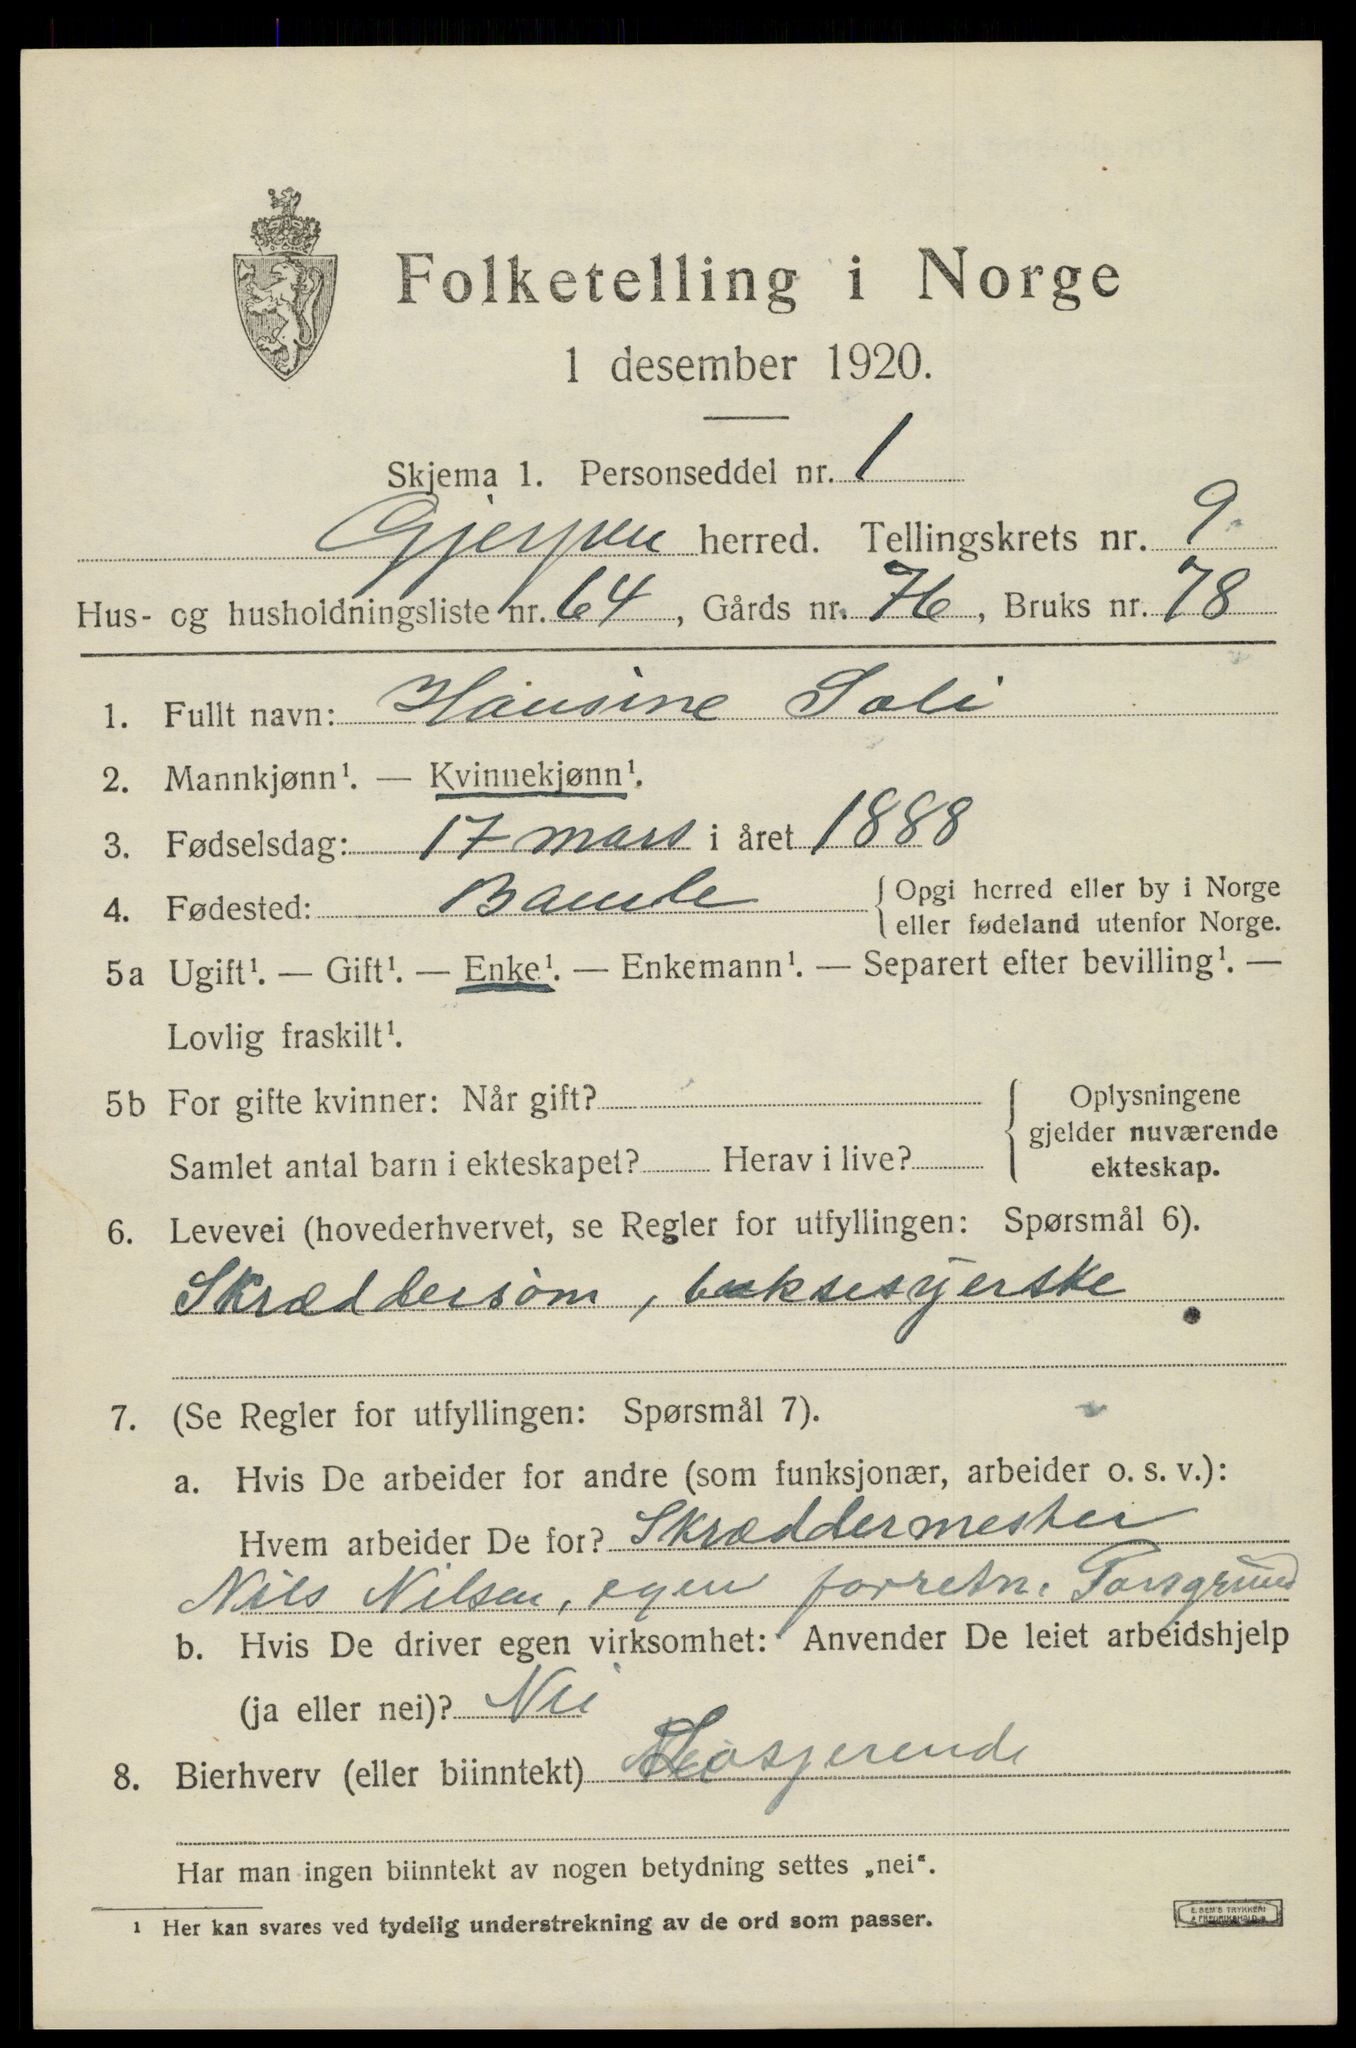 Folketelling i Norge
1 desember 1920.
Skjema 1. Personseddel nr. 1
Gjerpen herred. Tellingskrets nr. 9
Hus- og husholdningsliste nr. 64, Gårds nr. 76, Bruks nr. 78
1. Fullt navn: Hansine Soli
2. Mannkjønn¹. — Kvinnekjønn¹.
3. Fødselsdag: 17 mars i året 1888
4. Fødested: Bamle { Opgi herred eller by i Norge
eller fødeland utenfor Norge.
5a Ugift¹. — Gift¹. — Enke¹. — Enkemann¹. — Separert efter bevilling¹. —
Lovlig fraskilt¹.
5b For gifte kvinner: Når gift? { Oplysningene
gjelder nuværende
Samlet antal barn i ekteskapet? Herav i live? ekteskap.
6. Levevei (hovederhvervet, se Regler for utfyllingen: Spørsmål 6).
Skræddersøm, buksesyerske
7. (Se Regler for utfyllingen: Spørsmål 7).
a. Hvis De arbeider for andre (som funksjonær, arbeider o. s. v.):
Hvem arbeider De for? Skræddermester
Nils Nilsen, egen forretn. Porsgrund
b. Hvis De driver egen virksomhet: Anvender De leiet arbeidshjelp
(ja eller nei)? Nei
8. Bierhverv (eller biinntekt)
Har man ingen biinntekt av nogen betydning settes „nei“.
¹ Her kan svares ved tydelig understrekning av de ord som passer.
E. SEM'S TRYKKERI
FREDRIKSHALD